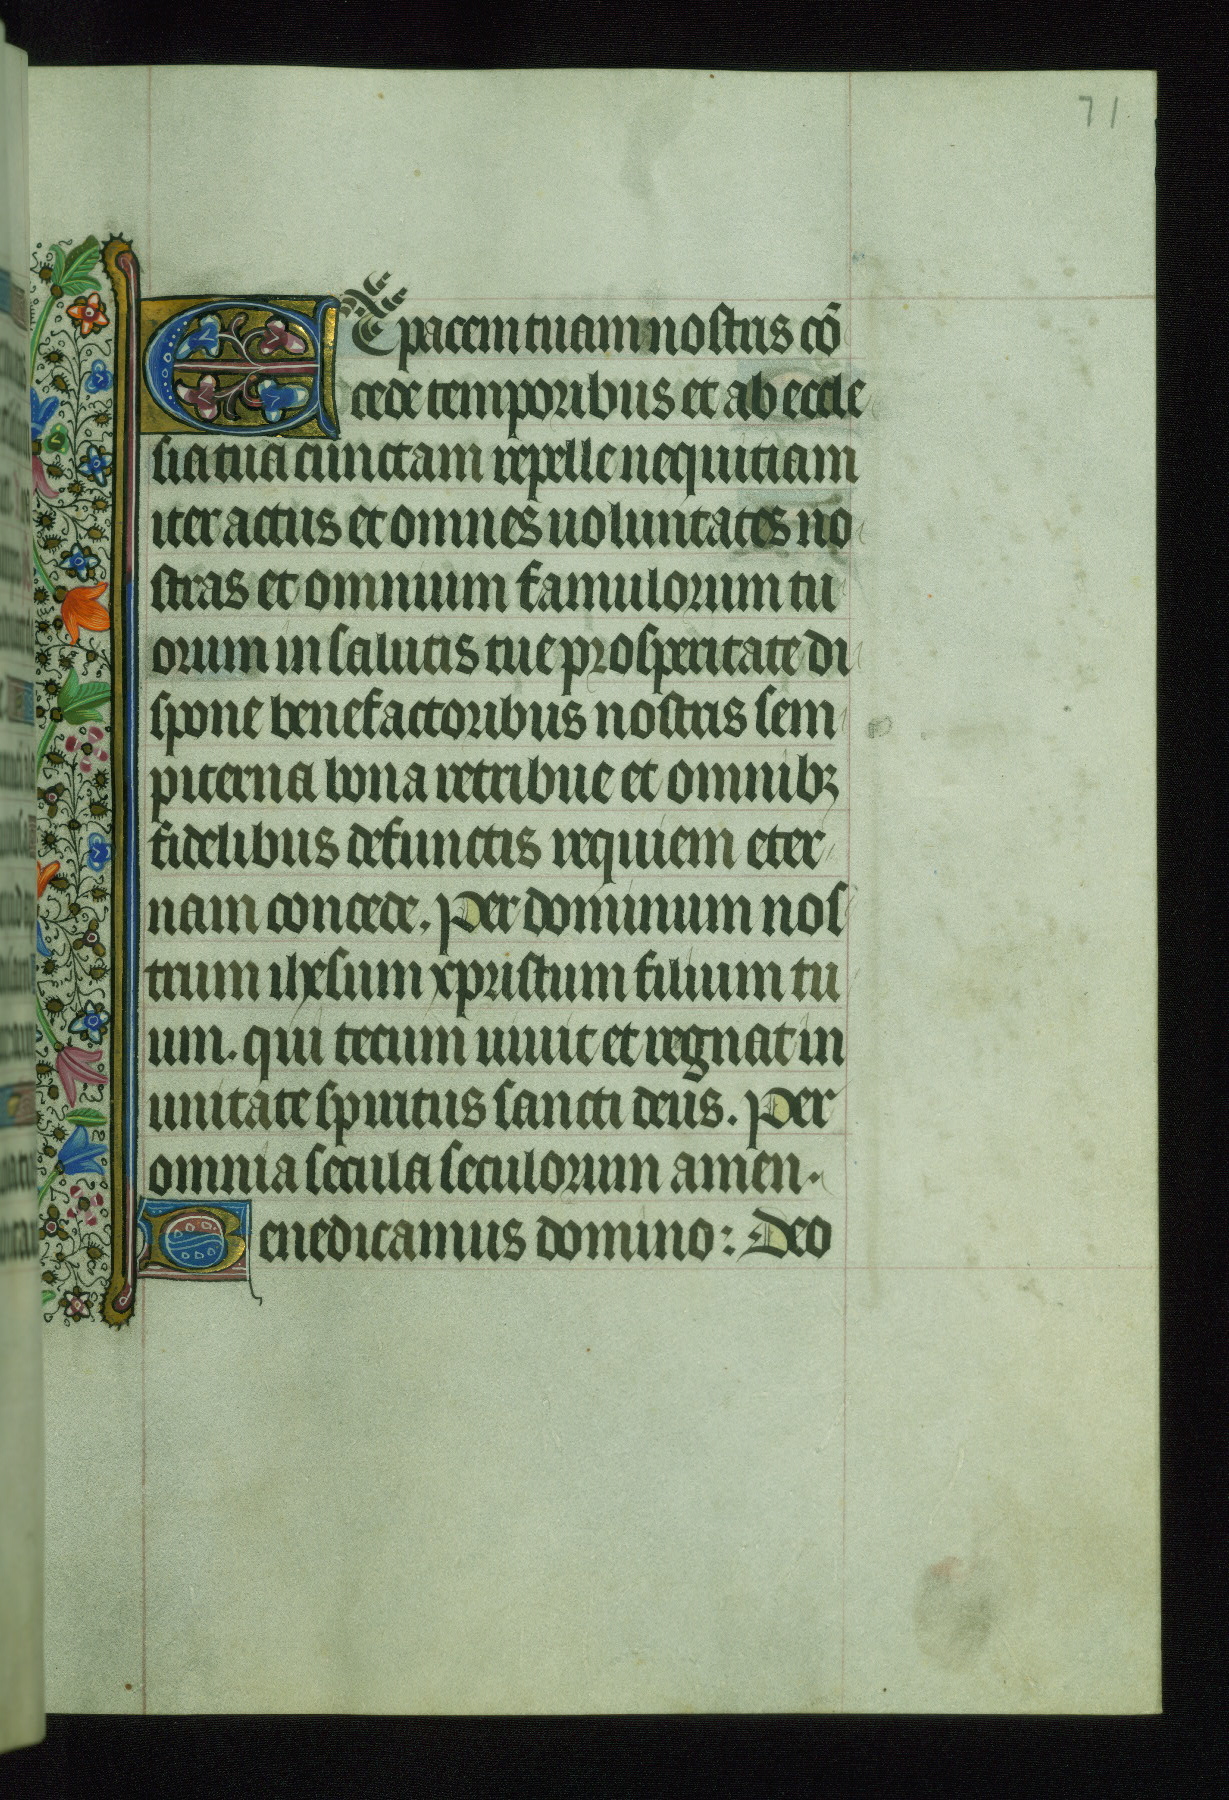 71
Et pacem tuam nostris cō
cede temporibus et ab eccle
sia tua cunctam repelle nequitiam
iter actus et omnes uoluntates no
stras et omnium famulorum tu
orum in salutis tue prosperitate di
spone benefactoribus nostris sem
piterna bona retribue et omnibꝫ
fidelibus defunctis requiem eter
nam concede. Per dominum nos
trum ihesum xpristum filium tu
um. qui tecum uiuit et regnat in
unitate spiritus sancti deus. Per
omnia secula seculorum amen.
Benedicamus domino: Deo